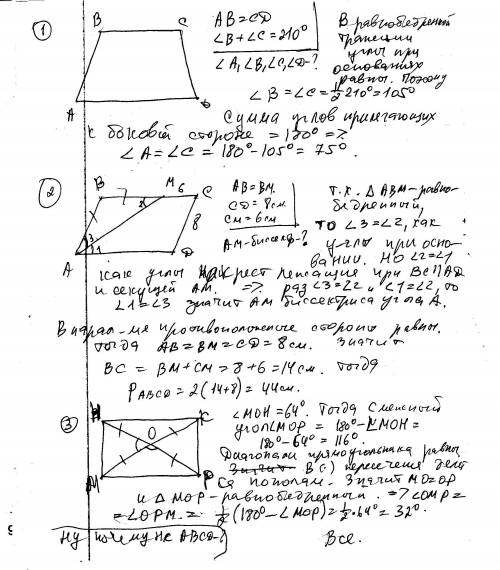 1
B C
A D
AB = CD
∠B + ∠C = 210°
∠A, ∠B, ∠C, ∠D - ?
В равнобедренной
трапеции
углы при
основаниях
равны. Поэтому
∠B = ∠C = 1/2 210° = 105°
Сумма углов прилегающих
к боковой стороне = 180° =>
∠A = ∠C = 180° - 105° = 75°.
2
B M 6 C
3 2 1 8
A D
AB = BM.
CD = 8см
CM = 6см
AM - биссект - ?
Т.к. △ABM - равно-
бедренный,
то ∠3 = ∠2, как
углы при осно-
вании. Но ∠2 = ∠1
как углы накрест лежащие при BC∥AD
и секущей AM. => раз ∠3 = ∠2 и ∠1 = ∠2, то
∠1 = ∠3 значит AM биссектриса угла A.
В паралл-ме противоположные стороны равны.
Тогда AB = BM = CD = 8см. Значит
BC = BM + CM = 8 + 6 = 14см. Тогда
PABCD = 2(14+8) = 44см.
3
H K
O
M P
∠MOH = 64°. Тогда смежный
угол ∠MOP = 180° - ∠MOH =
180° - 64° = 116°.
Диагонали прямоугольника равны
Значит В(·) пересечения делят
ся пополам. Значит MO = OP
и △MOP - равнобедренный. => ∠OMP =
= ∠OPM = 1/2 (180° - ∠MOP) = 1/2 · 64° = 32°.
Ну почему не ABCD - ?
Все.